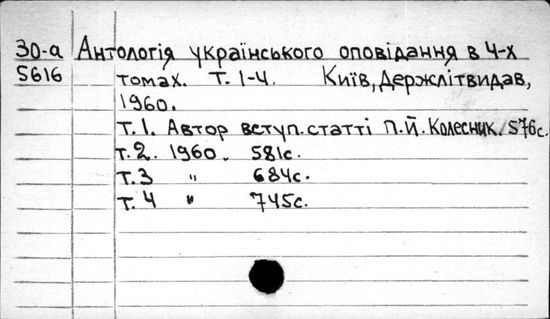 30-а Антологія українського оповідання в 4-х
5616 томах. Т. 1-4. Київ, Держлітвидав,
1960.
Т.1. Автор вступ. статті П.Й. Колесник. 576с.
т.2. 1960. 581с.
т.3 " 684с.
т.4 " 745с.